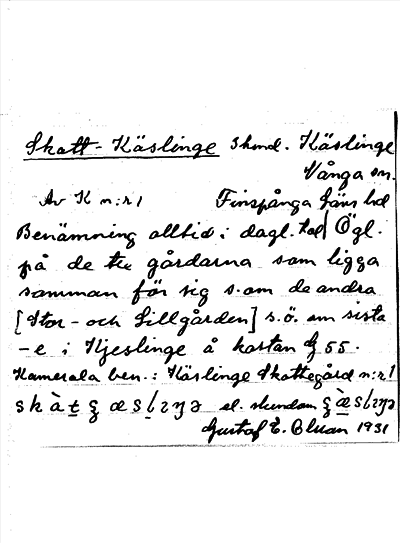 Skatt-Käslinge stund. Käslinge
Vånga sn.
Av K n:r 1 Finspånga läns hd
Benämning alltid i dagl. tal Ögl.
på de tre gårdarna som ligga
samman för sig s.om de andra
[Stor- och Lillgården] s.ö. om sista
-e i Kjeslinge å kartan G 55.
Kamerala ben.: Käslinge Skattegård n:r 1
el. stundom
Gustaf E. 1931